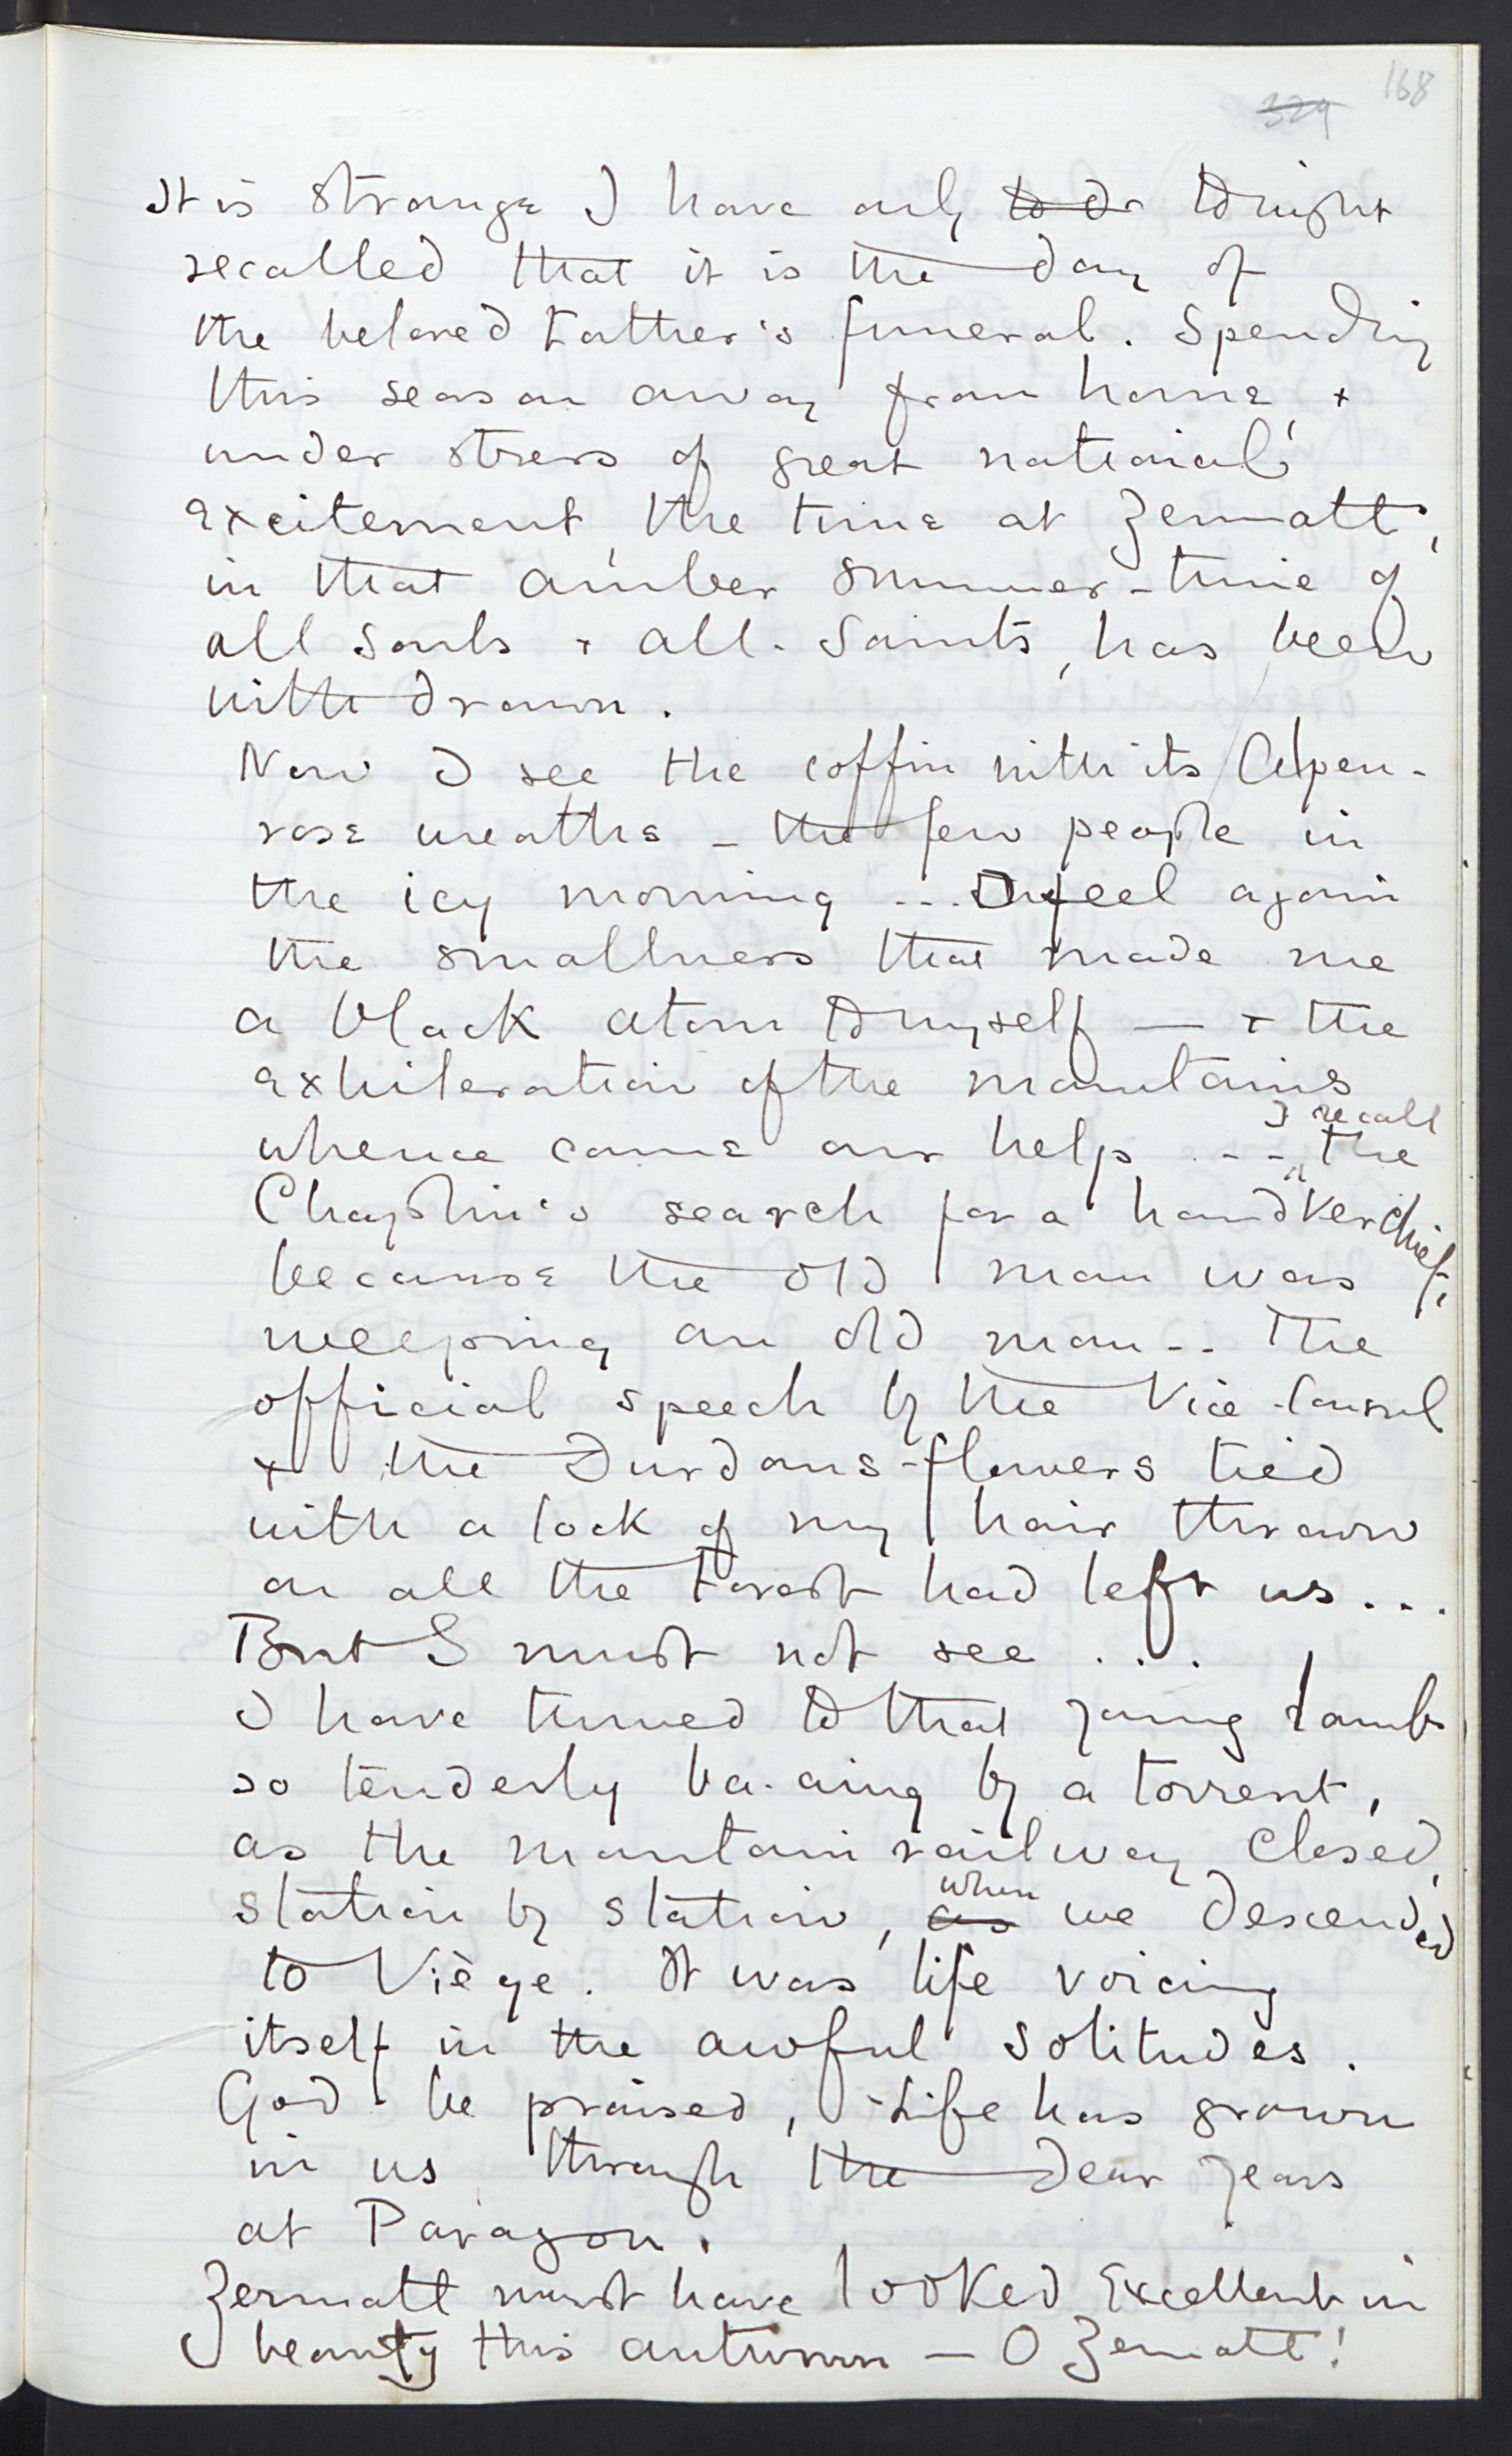 168
329
It is strange I have only to da tonight
recalled that it is the day of
the beloved Father's funeral. Spending
this season away from home, +
under stress of great national
excitement, the time at Zermatt,
in that amber summer-time of
all Souls + all-Saints, has been
withdrawn.
Now I see the coffin with its Alpen-
rose wreaths - the few people in
the icy morning ... feel again
the smallness that made me
a black atom to myself — + the
exhileration of the mountains
whence came our help -- I recall the
Chaplin's search for a handkerchief,
because the old man was
weeping an old man -- The
official speech by the Vice-Consul
+ the Durdans-flowers tied
with a lock of my hair thrown
on all the Forest had left us...
But I must not see ...
I have turned to that young lamb
so tenderly ba-aing by a torrent,
as the mountain railway closed,
station by station, as when we descended
to Viège. It was life voicing
itself in the awful solitudes.
God - be praised, - Life has grown
in us through the dear years
at Paragon.
Zermatt must have looked Excellent in
beauty this autumn — O Zermatt!